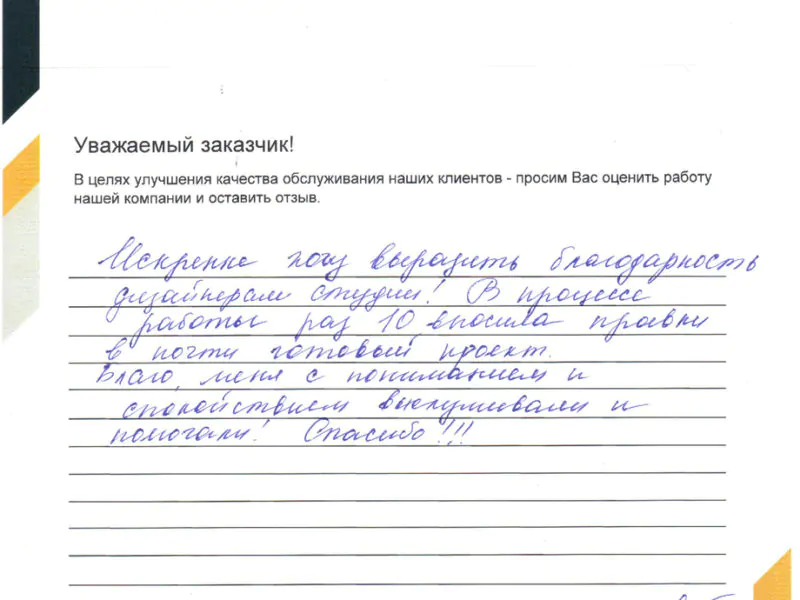 Уважаемый заказчик!
В целях улучшения качества обслуживания наших клиентов - просим Вас оценить работу
нашей компании и оставить отзыв.
Искренне хочу выразить благодарность
дизайнерам студии! В процессе
работы раз 10 вносила правки
в почти готовый проект.
Благо, меня с пониманием и
спокойствием выслушивали и
помогали! Спасибо!!!